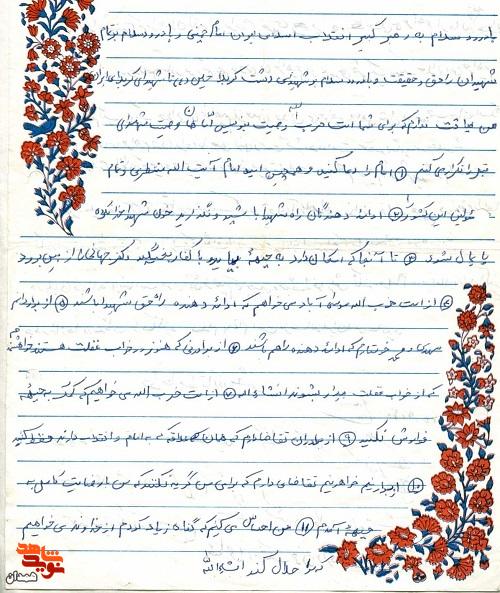 با درود و سلام به رهبر کبیر انقلاب اسلامی ایران امام خمینی و با درود و سلام بر تمام
شهیدان راه حق و حقیقت و با درود و سلام بر شهیدان دشت کربلا حسین و یا شهدای کربلای ایران
من لیاقت ندارم که برای شما امت حزب الله وصیت بنویسم اما جان وصیت شهدای
قبل را تکرار می کنم ① امام را دعا کنید و همچنین امید امام آیت الله منتظری و تمام
مسئولین این کشور را ② ادامه دهندگان راه شهدا باشید و نگذارید خون شهدا خدا نکرده
پایمال شود ③ تا آنجا که امکان دارد به جبهه بیایید با کفار بجنگید
④ از امت حزب الله آباد می خواهم که ادامه دهنده راه حق شهیدا باشند ⑤ از برادرانم
مهدی و خود دارم که ادامه دهنده راهم باشند ⑥ از برادرانی که هنوز در خواب غفلت هستند خواهشمندم
که از خواب غفلت بیدار بشوند انشاءالله ⑦ از امت حزب الله می خواهم که کمک به جبهه
فراموش نکنید ⑨ از برادران تقاضا دارم که به امام و انقلاب دارند حفظ کنید
⑩ از مادرم خواهرم تقاضای دارم که برای من گریه نکنند که من با رضایت کامل به
جبهه آمدم ⑪ من احساس می کنم که گناه زیاد کردم از خداوند می خواهم
که مرا حلال کند انشاءالله
نوید شاهد
همدان